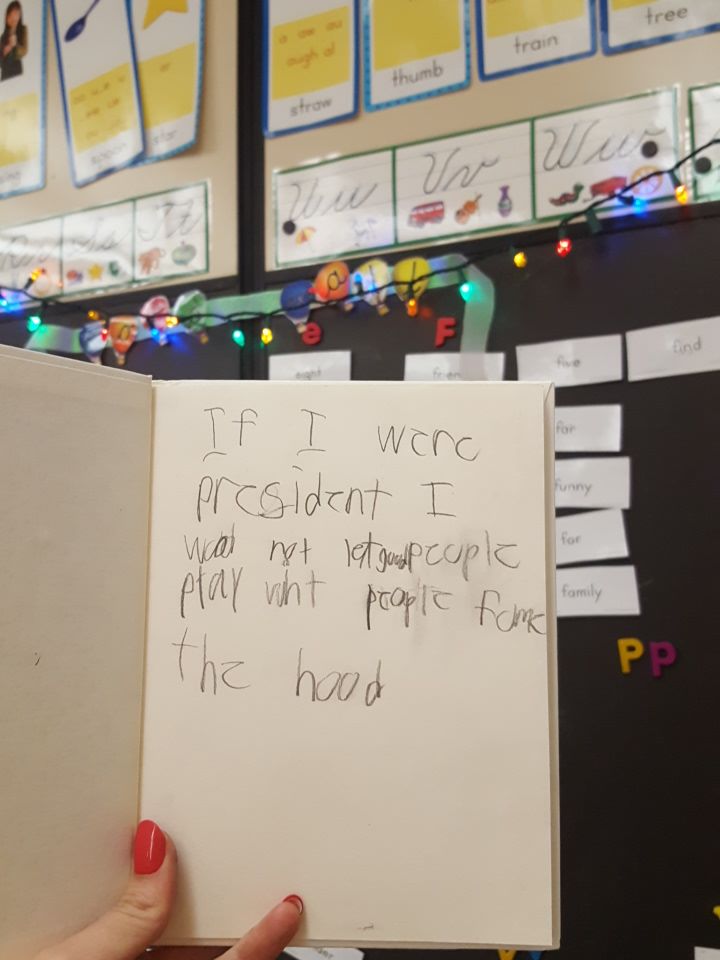 a aw au
augh al
straw
thumb
train
tree
spoon
star
Uu
Vv
Ww
Tt
e
F
eight
friend
five
find
for
funny
far
family
P
P
If I were
president I
wood not let good people
play wiht people fomc
the hood